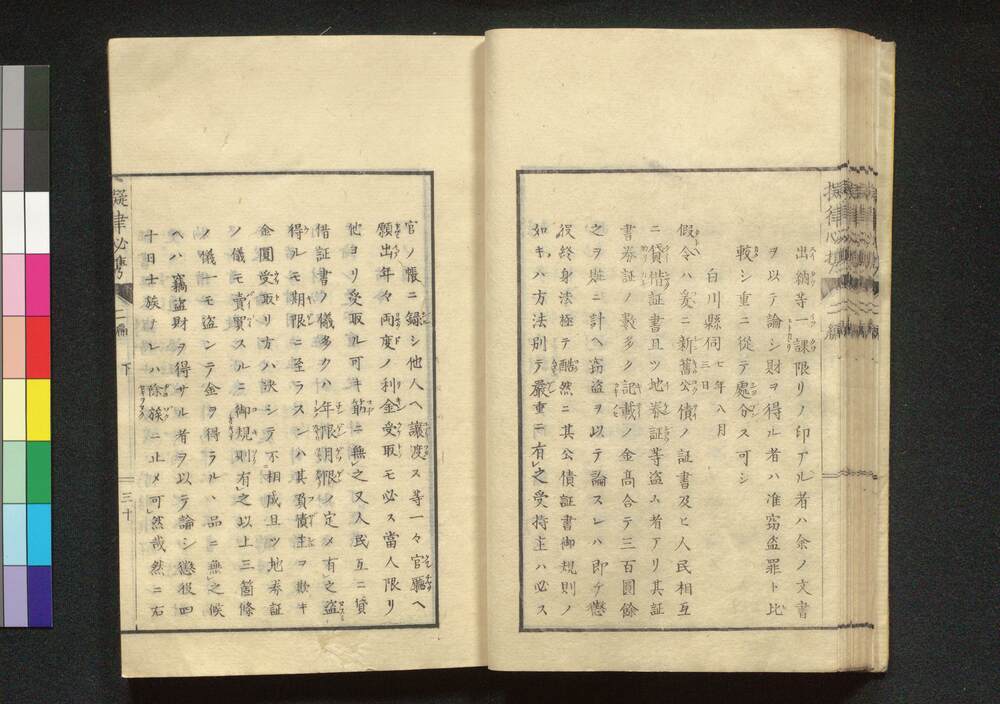 出納等一課限リノ印アル者ハ余ノ文書
ヲ以テ論シ財ヲ得ル者ハ准窃盗罪ト比
較シ重ニ従テ處分ス可シ
白川縣伺 七年八月三日
假令ハ爰ニ新舊公債ノ証書及ヒ人民相互
ニ貸借証書且ツ地券証等盗ム者アリ其証
書券証ノ數多ク記載ノ金高合テ三百圓餘
之ヲ贓ニ計ヘ窃盗ヲ以テ論スレハ即チ懲
役終身法極テ酷然ニ其公債証書御規則ノ
如キハ方法別テ嚴重ニ有之受持主ハ必ス
官ノ帳ニ録シ他人ヘ譲渡ス等一々官廳ヘ
願出年々両度ノ利金受取モ必ス當人限リ
他ヨリ受取ル可キ筋ニ無之又人民互ニ貸
借証書ノ儀多クハ年限月限ノ定メ有之盗
得ルモ期限ニ至ラスンハ其負債主ヲ欺キ
金圓受取リ方ハ決シテ不相成且ツ地券証
ノ儀モ賣買スルニ御規則有之以上三箇條
ノ儀一モ盗ンテ金ヲ得ラルヽ品ニ無之候
ヘハ竊盗財ヲ得サル者ヲ以テ論シ懲役四
十日士族ナレハ除族ニ止メ可然哉然ニ右
擬律必携
二編 下
三十